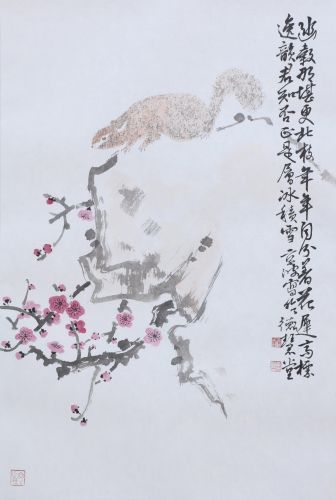 幽穀那堪更北枝年年自分著花遲高標
逸韻君知否正是層冰積雪